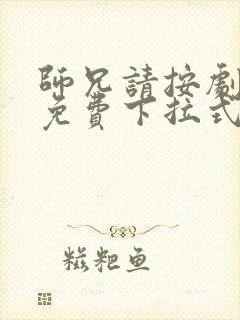 師兄請按劇
免費下拉式
糍粑鱼